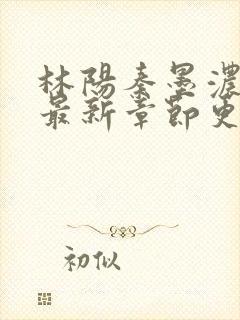 林陽秦墨濃
最新章節更
初似